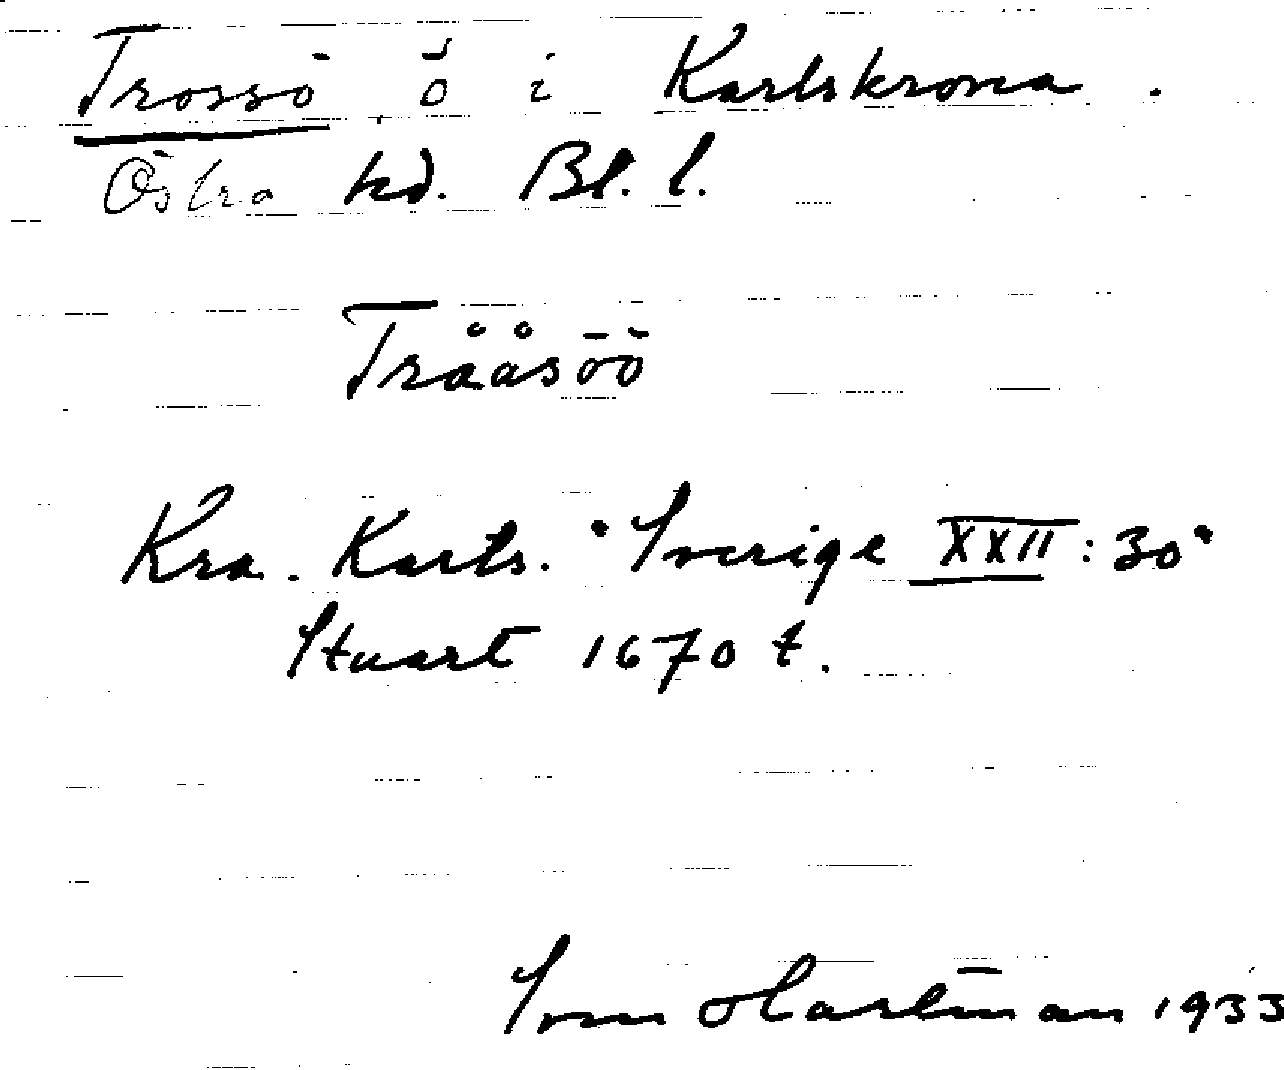 Trossö ö i Karlskrona.
Östra hd. Bl. l.
Trååsöö
Kra. Karts. "Sverige XXII: 30"
Stuart 1670 t.
Sven Hartman 1933